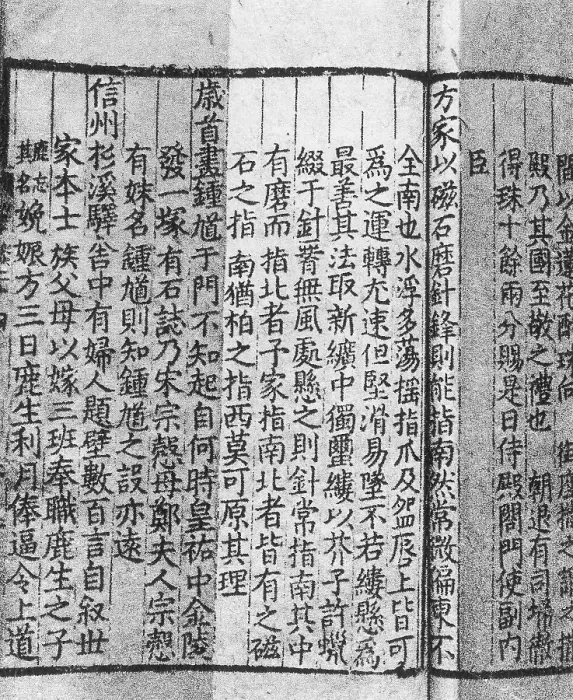 以金蓮花酌珠向 御座撒之謂之撒
殿乃其國至敬之禮也 朝退有司埽徹
得珠十餘兩分賜是日侍殿閤門使副内
臣
方家以磁石磨針鋒則能指南然常微偏東不
全南也水浮多蕩揺指爪及盌唇上皆可
爲之運轉尤速但堅滑易墜不若縷懸爲
最善其法取新纊中獨蠒縷以芥子許蠟
綴于針無風處懸之則針常指南其中
有磨而指北者予家指南北者皆有之磁
石之指南猶柏之指西莫可原其理
歳首畫鍾馗于門不知起自何時皇祐中金陵
發一塚有石誌乃宋宗愨母鄭夫人宗愨
有妹名鍾馗則知鍾馗之設亦遠
信州杉溪驛舍中有婦人題壁數百言自叙世
家本士族父母以嫁三班奉職鹿生之子
鹿忘其名娩娠方三日鹿生利月俸逼令上道